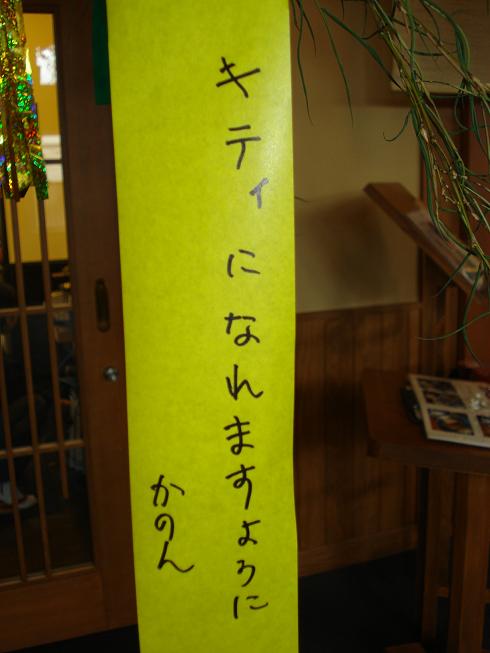 キティになれますように
かのん